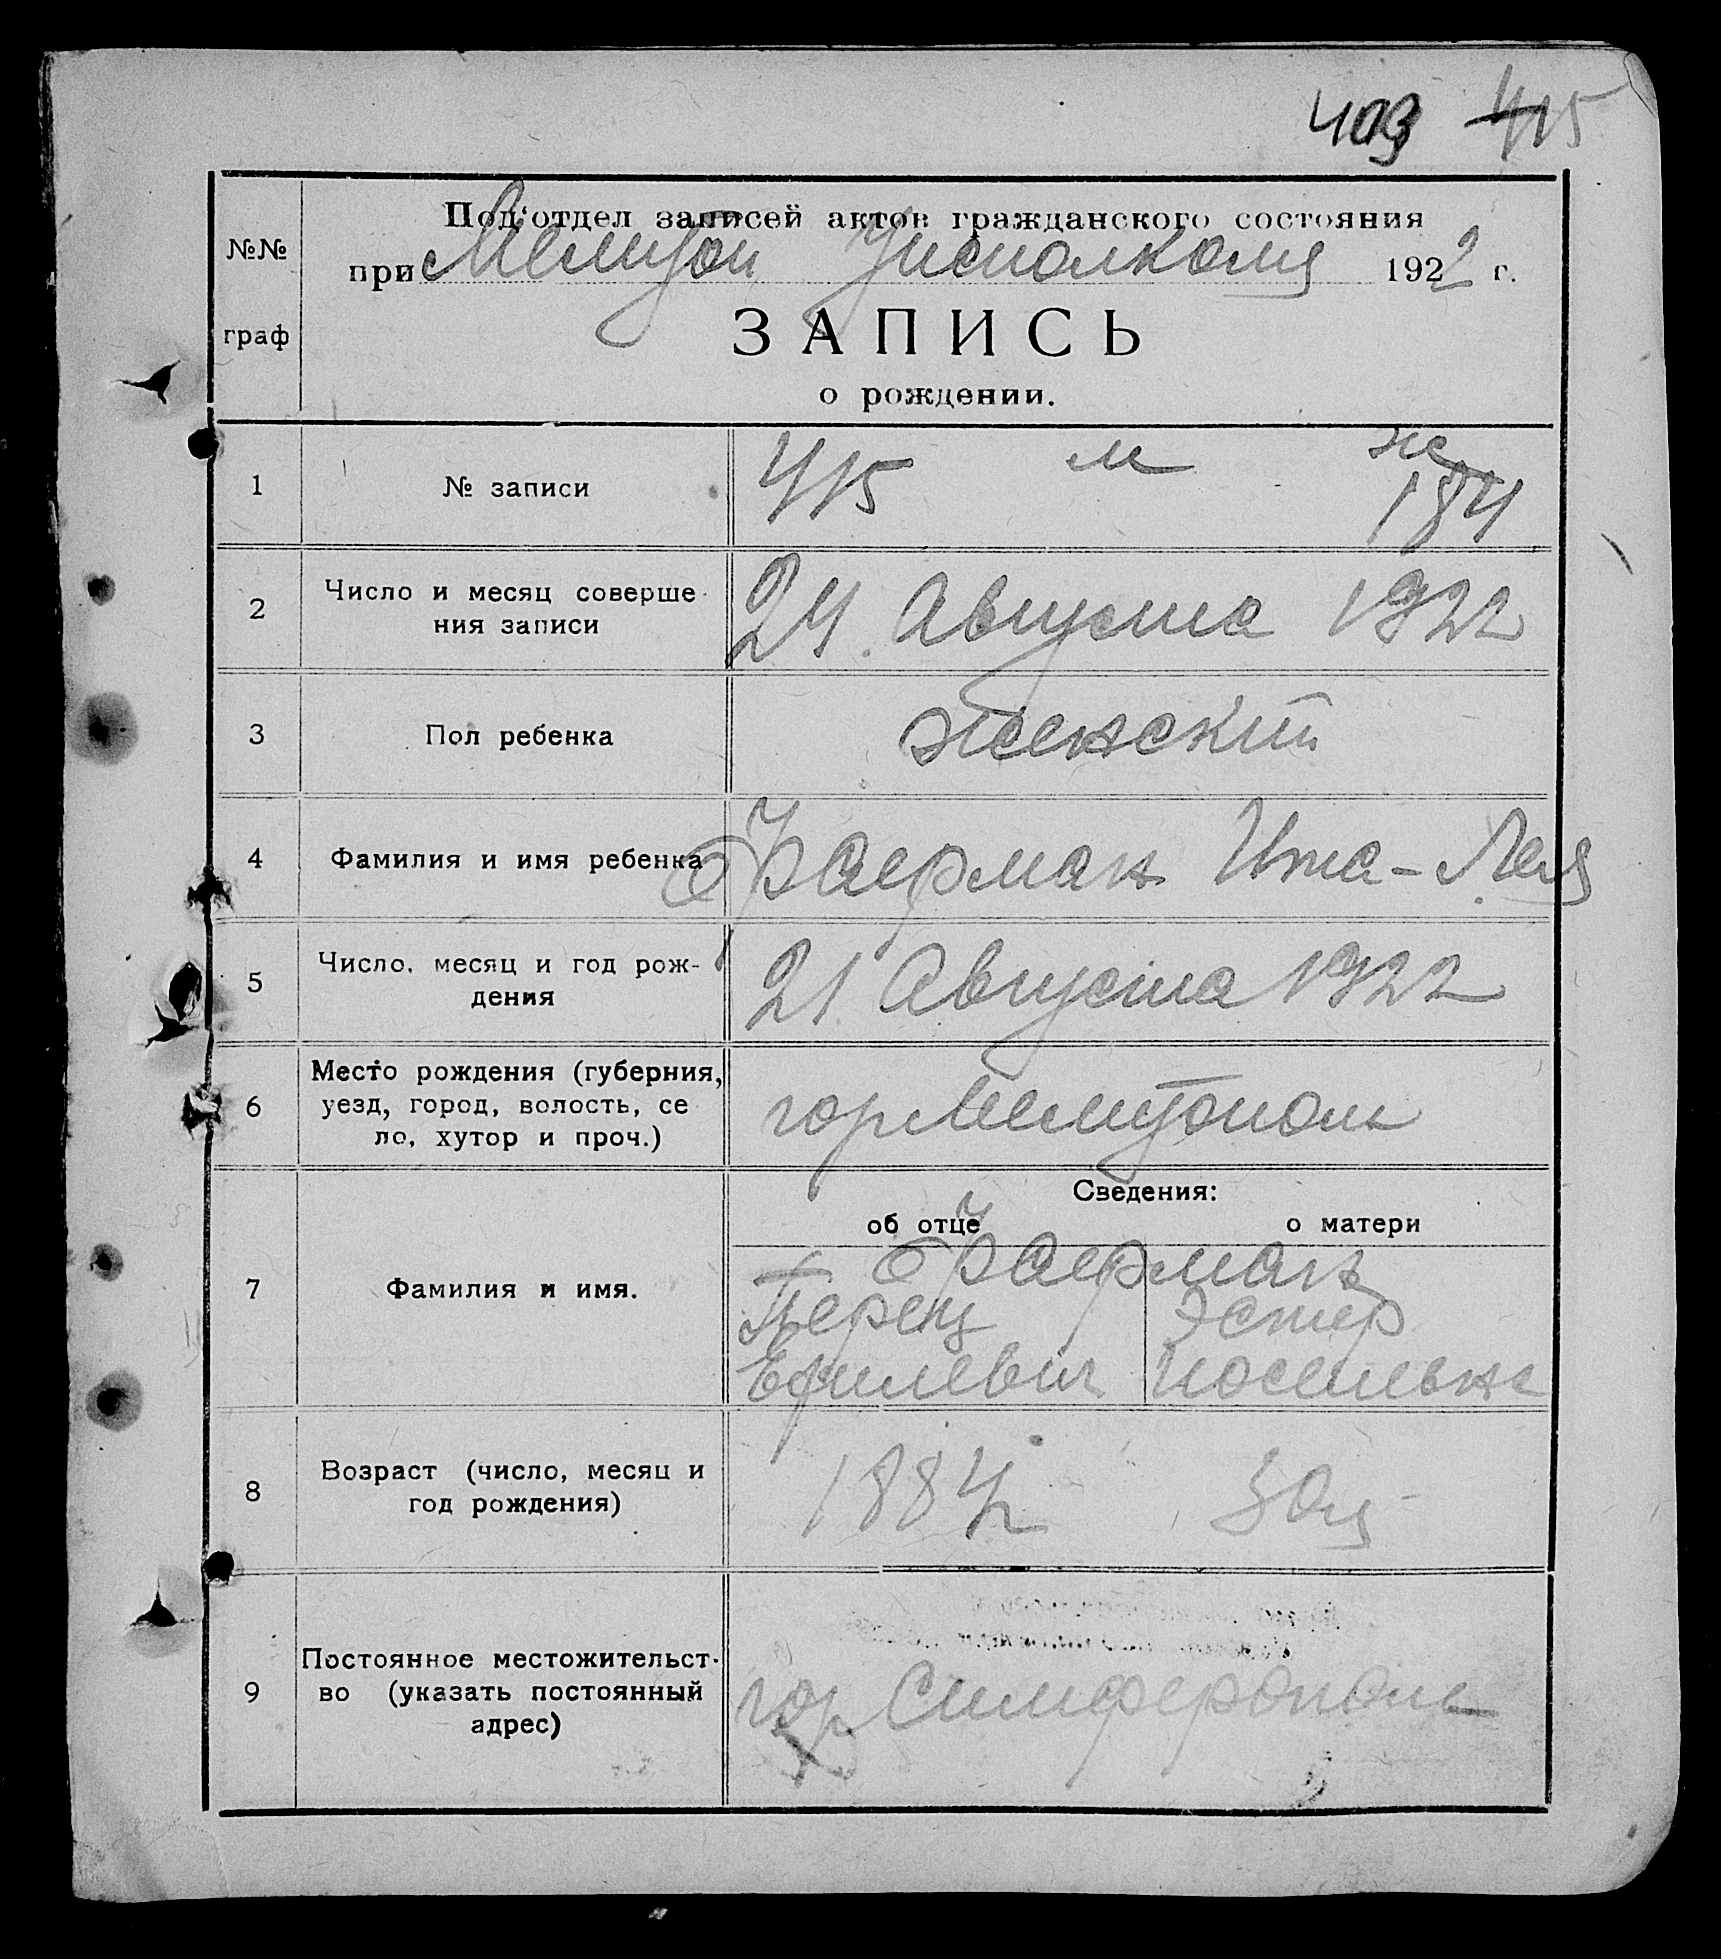 403 415
№№
граф
Под'отдел записей актов гражданского состояния
при Мелитоп. Уисполкома 1922 г.
ЗАПИСЬ
о рождении.
1 № записи 415 м ж 184
2 Число и месяц соверше-
ния записи 24 Августа 1922
3 Пол ребенка женский
4 Фамилия и имя ребенка Фаерман Ита-Лея
5 Число, месяц и год рож-
дения 21 Августа 1922
6 Место рождения (губерния,
уезд, город, волость, се
ло, хутор и проч.) гор Мелитополь
Сведения:
об отце о матери
7 Фамилия и имя. Фаерман
Перец Эстер
Ефимевич Иосемевна
8 Возраст (число, месяц и
год рождения) 1884 г 30
9 Постоянное местожительст-
во (указать постоянный
адрес) гор Симферополь